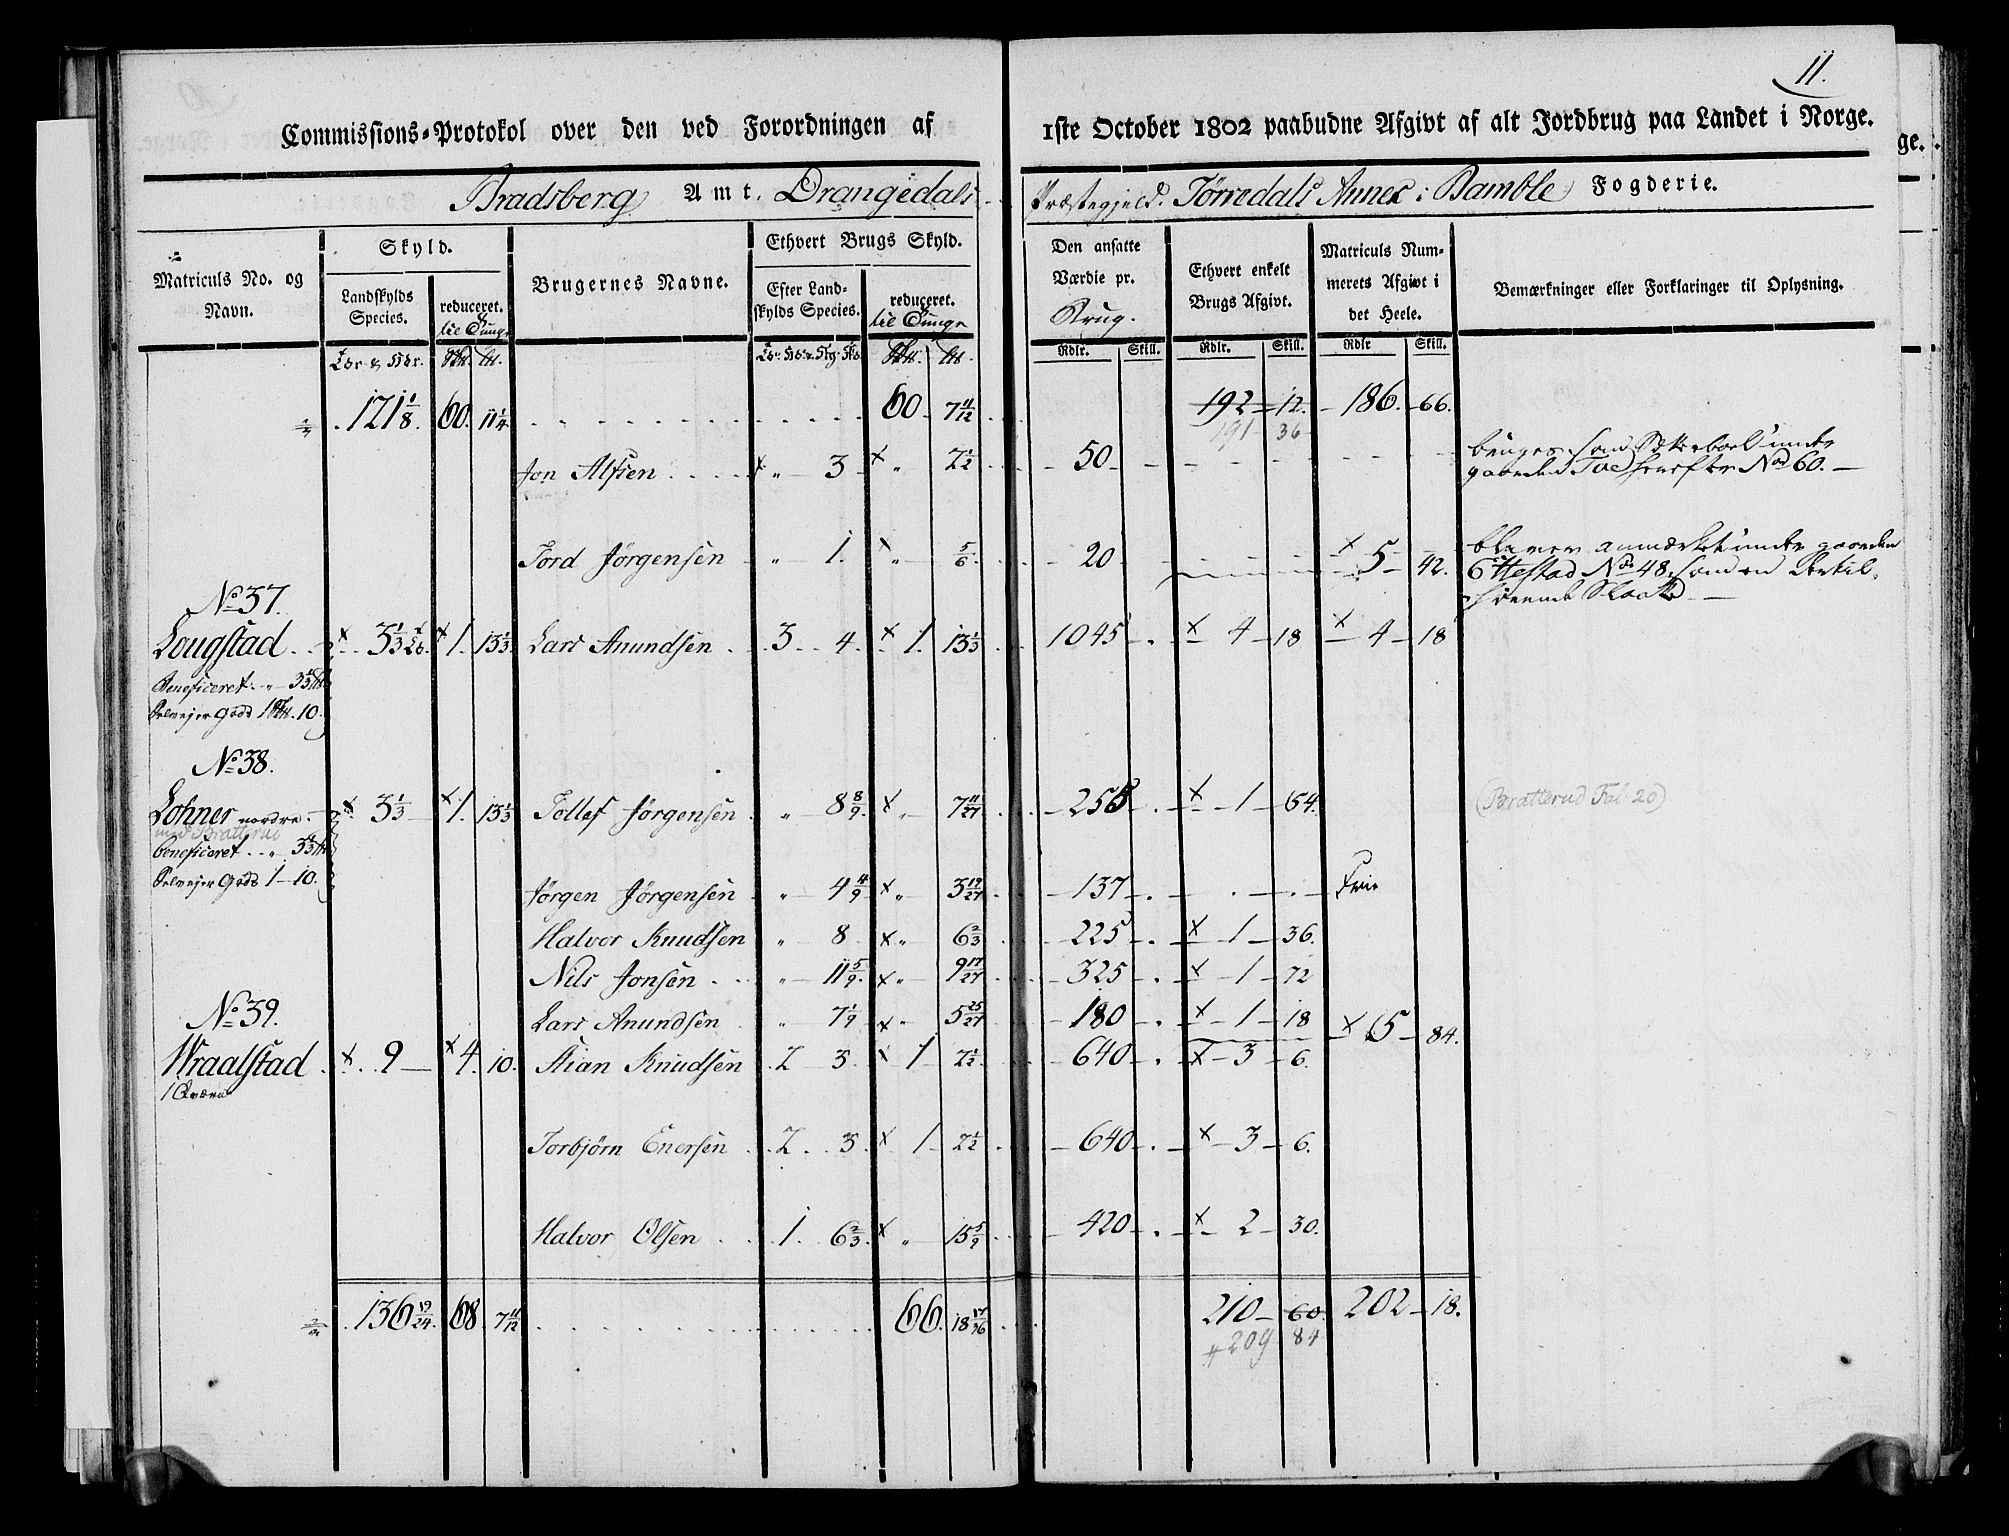 11.
Commissions-Protokol over den ved Forordningen af 1ste October 1802 paabudne Afgivt af alt Jordbrug paa Landet i Norge.
Bradsberg Amt. Drangedals Præstegjeld. Tørredals Annex i Bamble Fogderie.
Matriculs No. og Navn.
Skyld.
Landskylds Species.
reduceret. til Tunge
Brugernes Navne.
Ethvert Brugs Skyld.
Efter Landskylds Species.
reduceret. til Tunge
Den ansatte Værdie pr. Brug.
Ethvert enkelt Brugs Afgivt.
Matriculs Nummerets Afgivt i det Heele.
Bemærkninger eller Forklaringer til Oplysning.
Rdlr. Skill. Rdlr. Skill. Rdlr Skill.
121 1/8 60. 11 1/4 60 7 11/12 192 12. 186. 66.
191 36
Jon Alfsen 3 2 1/2 50 bruges som under gaarden Toe herefter No 60.
Tord Jørgensen 1. 5/6 20 5 42. bleven anmærket under gaarden
No 48. som en
No 37.
Lougstad 3 1/3 1. 13 1/3 Lars Anundsen 3 4. 1. 13 1/3 1045 4 18 4 18
Beneficeret 3 1/3
Selvejer Gods 1 10.
No 38.
Lohner nordre 3 1/3 1. 13 1/3 Tollef Jørgensen 8 8/9 7 11/27 255 1 54. (Bratterud Fol 20)
med Bratterud
beneficeret 3 1/3
Selvejer Gods 1 10.
Jørgen Jørgensen 4 4/9 3 19/27 137 Frie
Halvor Knudsen 8 6 2/3 225 1 36.
Nils Jonsen 11 5/9 9 17/27 325 1 72
No 39.
Lars Anundsen 7 1/9 5 25/27 180 1 18 5 84.
Wraalstad 9 4. 10. Kian Knudsen 2 3. 1 2 1/2 640 3 6.
1 Qværn
Torbjørn Enersen 2. 3. 1 2 1/2 640 3 6.
Halvor Olsen 1. 6 2/3 15 5/9 420 2 30.
136 19/24 68 7 11/12 66. 18 17/36 210 60. 202 18.
209 84